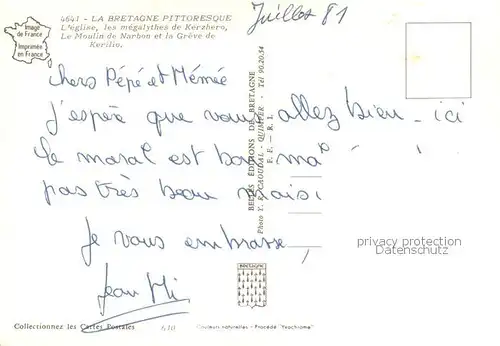 Juillet 81
4641 - LA BRETAGNE PITTORESQUE
L'église, les mégalythes de Kerzhero,
Le Moulin de Narbon et la Grève de
Kerilio.
Image
de France
Imprimée
en France
Chers Pépé et Mémée
J'espère que vous allez bien - ici
le moral est bon
pas très beau mais
Je vous embrasse
Jean Mi
BELLES ÉDITIONS DE BRETAGNE
Photo Y. R. CAOUDAL - QUIMPER - Tél 90.20.54
F. F. - R. I.
privacy protection
Datenschutz
BRETAGNE
Collectionnez les Cartes Postales
Couleurs naturelles - Procédé "Yeachrome"